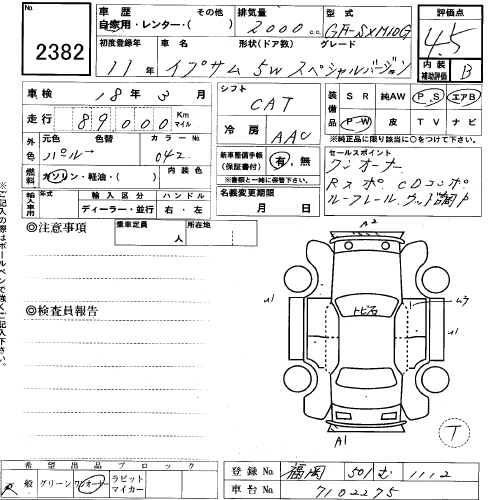 2382
車歴 その他
自家用・レンター・( )
排気量
2000cc
型式
GF-SXM10G
評価点
4.5
内装補助評価
B
初度登録年
11年
車名
イプサム
形状(ドア数)
5W
グレード
スペシャルバージョン
車検
18年3月
シフト
CAT
冷房
AAC
装備品
SR 純AW P.S エアB
P.W 皮 TV ナビ
※純正品に限り該当に○をつけて下さい。
走行
89000Kmマイル
外色
元色 色替 カラーNo.
パール→ 042
燃料
ガソリン・軽油・( )
内装色
新車整備手帳(保証書付)
有.無
※書類と一緒に保管下さい。
セールスポイント
ワンオーナー
Rスポ CDコンポ
ルーフレール ウッド調P
輸入車用
年式 輸入区分 ハンドル
ディーラー・並行 右・左
名義変更期限
月 日
◎注意事項
乗車定員
人
所在地
※ご記入の際はボールペンで強くご記入下さい。
◎検査員報告
A2
U1
トビ石
U3
U1
A1
T
希望出品ブロック
一般 グリーン ワンオーナー ラビットマイカー
登録No.
福岡 501 む 1112
車台No.
7102295